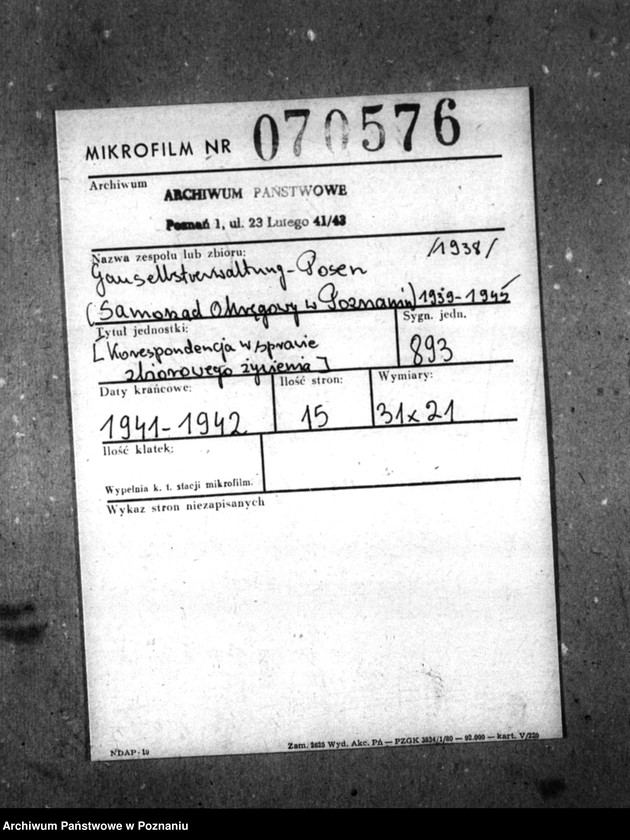 MIKROFILM NR 070576
Archiwum
ARCHIWUM PAŃSTWOWE
Poznań 1, ul. 23 Lutego 41/43
Nazwa zespołu lub zbioru:
/1938/
Gauselbstverwaltung-Posen
(Samorząd Okręgowy w Poznaniu) 1939-1945
Tytuł jednostki:
Sygn. jedn.
[Korespondencja w sprawie
zbiorowego żywienia]
893
Daty krańcowe:
Ilość stron:
Wymiary:
1941-1942
15
31x21
Ilość klatek:
Wypełnia k. t. stacji mikrofilm.
Wykaz stron niezapisanych
NDAP-19
Zam. 2625 Wyd. Akc. Pń — PZGK 3834/1/80 — 92.000 — kart. V/220
Archiwum Państwowe w Poznaniu